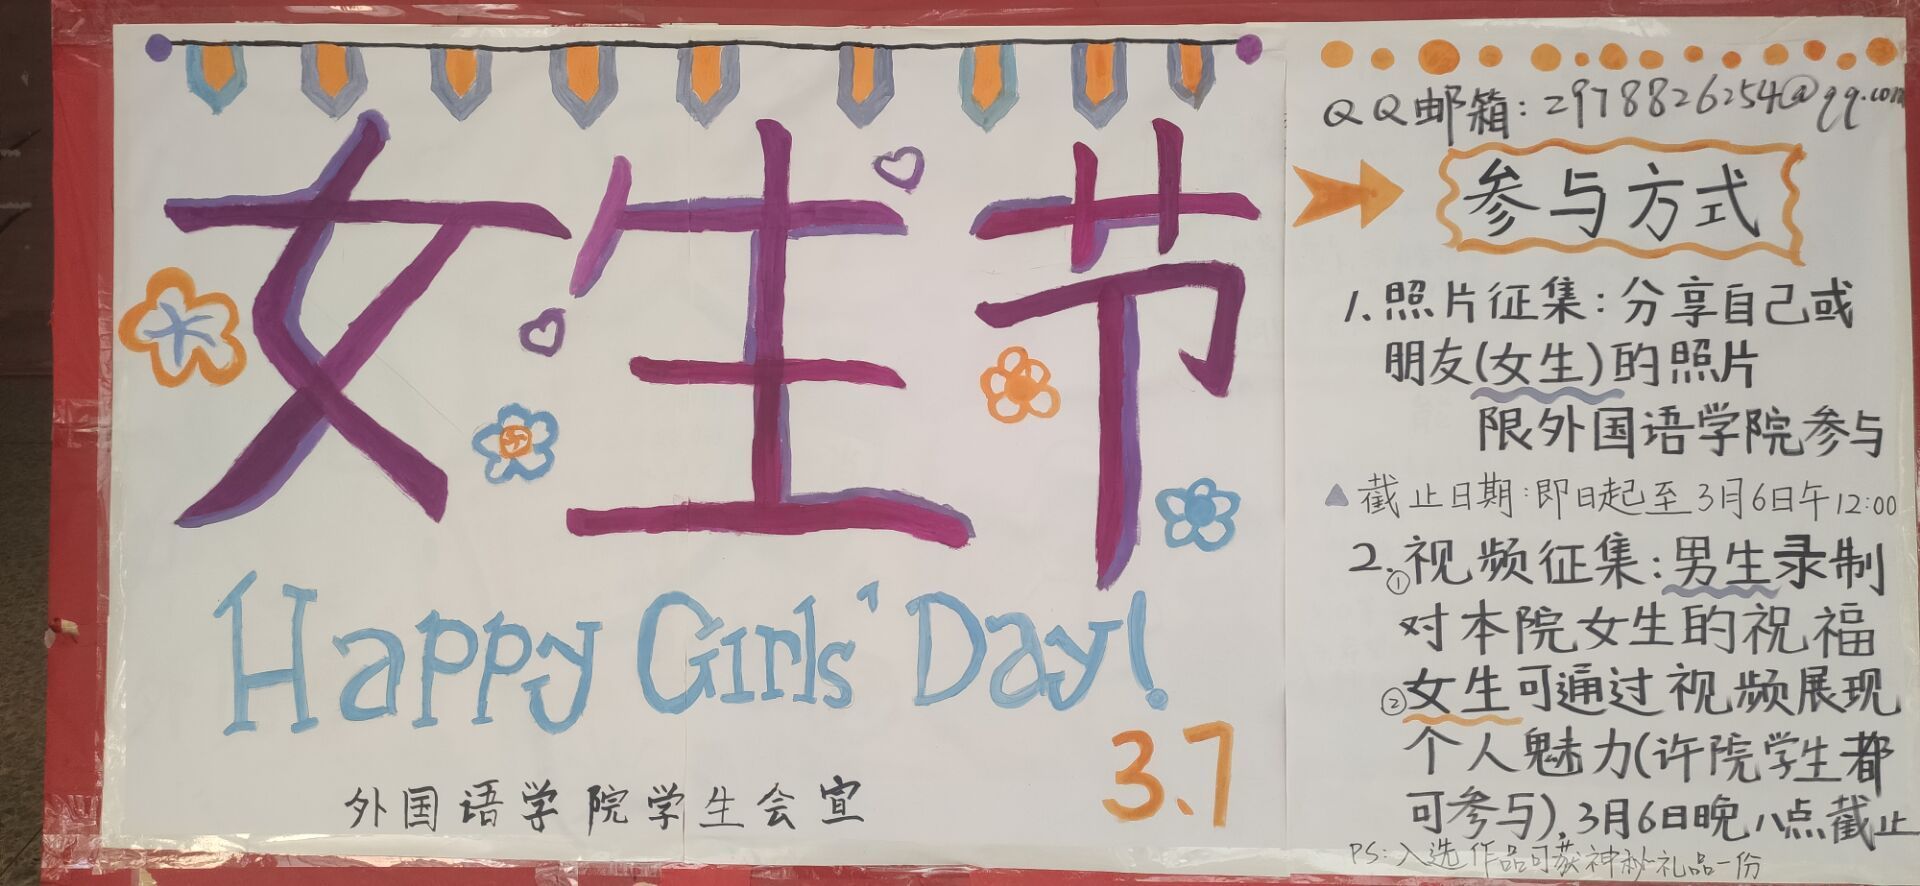 女生节
Happy Girls' Day!
3.7
外国语学院学生会宣
QQ邮箱:2978826254@qq.com
参与方式
1.照片征集:分享自己或
朋友(女生)的照片
限外国语学院参与
截止日期:即日起至3月6日午12:00
2.①视频征集:男生录制
对本院女生的祝福
②女生可通过视频展现
个人魅力(许院学生都
可参与),3月6日晚八点截止
PS:入选作品可获神秘礼品一份